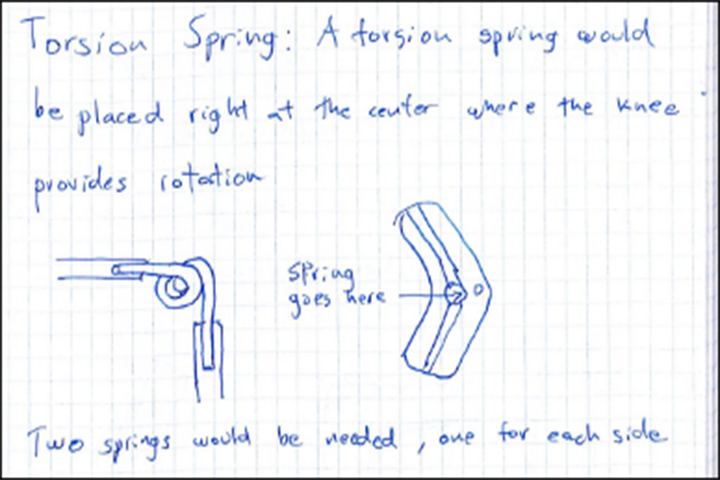 Torsion Spring: A torsion spring would
be placed right at the center where the knee
provides rotation
spring
goes here
Two springs would be needed, one for each side